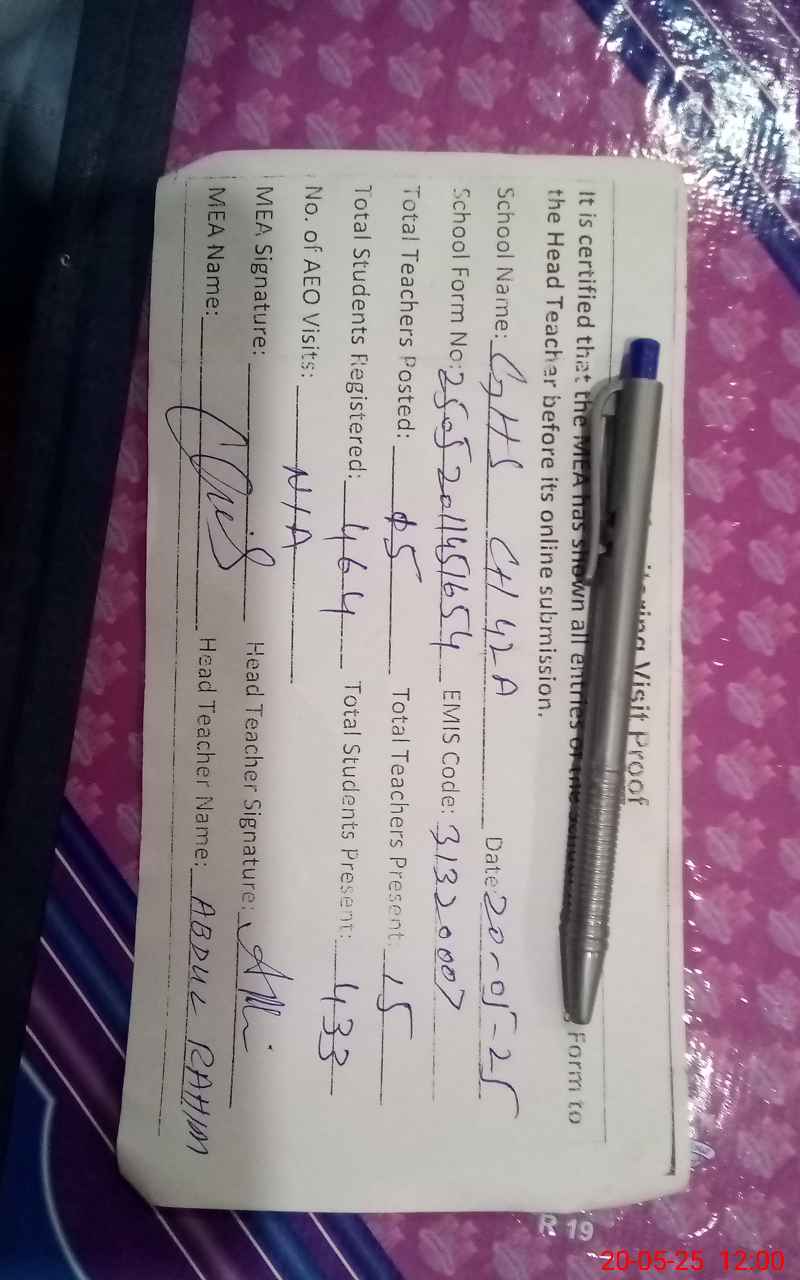 Visit Proof
It is certified that the MEA has shown all entries of the Form to
the Head Teacher before its online submission.
School Name: GHS CH 42A Date: 20-05-25
School Form No: EMIS Code: 31320007
Total Teachers Posted: 15 Total Teachers Present: 15
Total Students Registered: 464 Total Students Present: 433
No. of AEO Visits: N/A
MEA Signature: Head Teacher Signature:
MEA Name: Head Teacher Name: ABDUL RAHIM
R 19
20-05-25 12:00